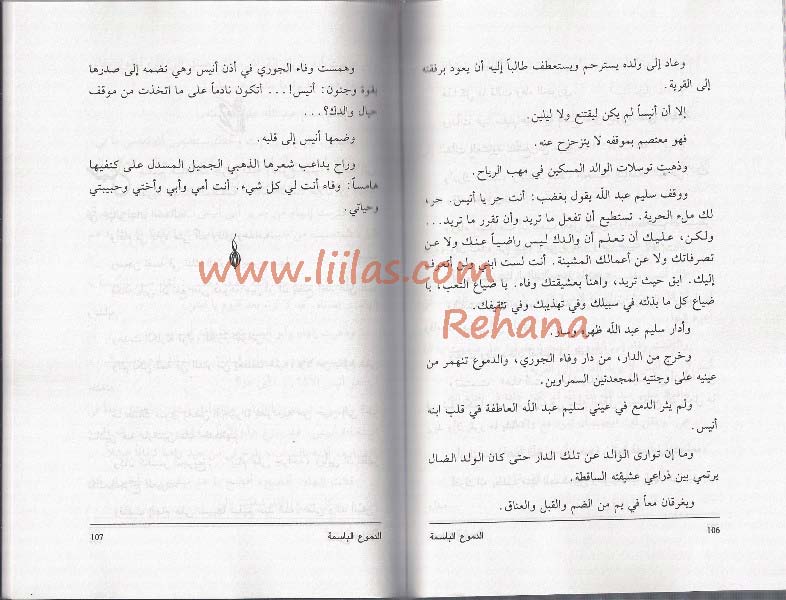 وعاد إلى ولده يسترحم ويستعطف طالباً إليه أن يعود برفقته
إلى القرية.
إلا أن أنيساً لم يكن ليقتنع ولا ليلين.
فهو معتصم بموقفه لا يتزحزح عنه.
وذهبت توسلات الوالد المسكين في مهب الرياح.
ووقف سليم عبد اللّه يقول بغضب: أنت حر يا أنيس. حر،
لك ملء الحرية. تستطيع أن تفعل ما تريد وأن تقرر ما تريد...
ولكن، عليك أن تعلم أن والدك ليس راضياً عنك ولا عن
تصرفاتك ولا عن أعمالك المشينة. أنت لست ابني ولن أتعرف
إليك. ابق حيث تريد، واهنأ بعشيقتك وفاء. يا ضياع التعب، يا
ضياع كل ما بذلته في سبيلك وفي تهذيبك وفي تثقيفك.
وأدار سليم عبد اللّه ظهره وسار.
وخرج من الدار، من دار وفاء الجوري، والدموع تنهمر من
عينيه على وجنتيه المجعدتين السمراوين.
ولم يثر الدمع في عيني سليم عبد اللّه العاطفة في قلب ابنه
أنيس.
وما إن توارى الوالد عن تلك الدار حتى كان الولد الضال
يرتمي بين ذراعي عشيقته الساقطة.
ويغرقان معاً في يم من الضم والقبل والعناق.
106
الدموع الباسمة
وهمست وفاء الجوري في أذن أنيس وهي تضمه إلى صدرها
بقوة وجنون: أنيس!... أتكون نادماً على ما اتخذت من موقف
حيال والدك؟...
وضمها أنيس إلى قلبه.
وراح يداعب شعرها الذهبي الجميل المسدل على كتفيها
هامساً: وفاء أنت لي كل شيء. أنت أمي وأبي وأختي وحبيبتي
وحياتي.
الدموع الباسمة
107
www.liilas.com
Rehana